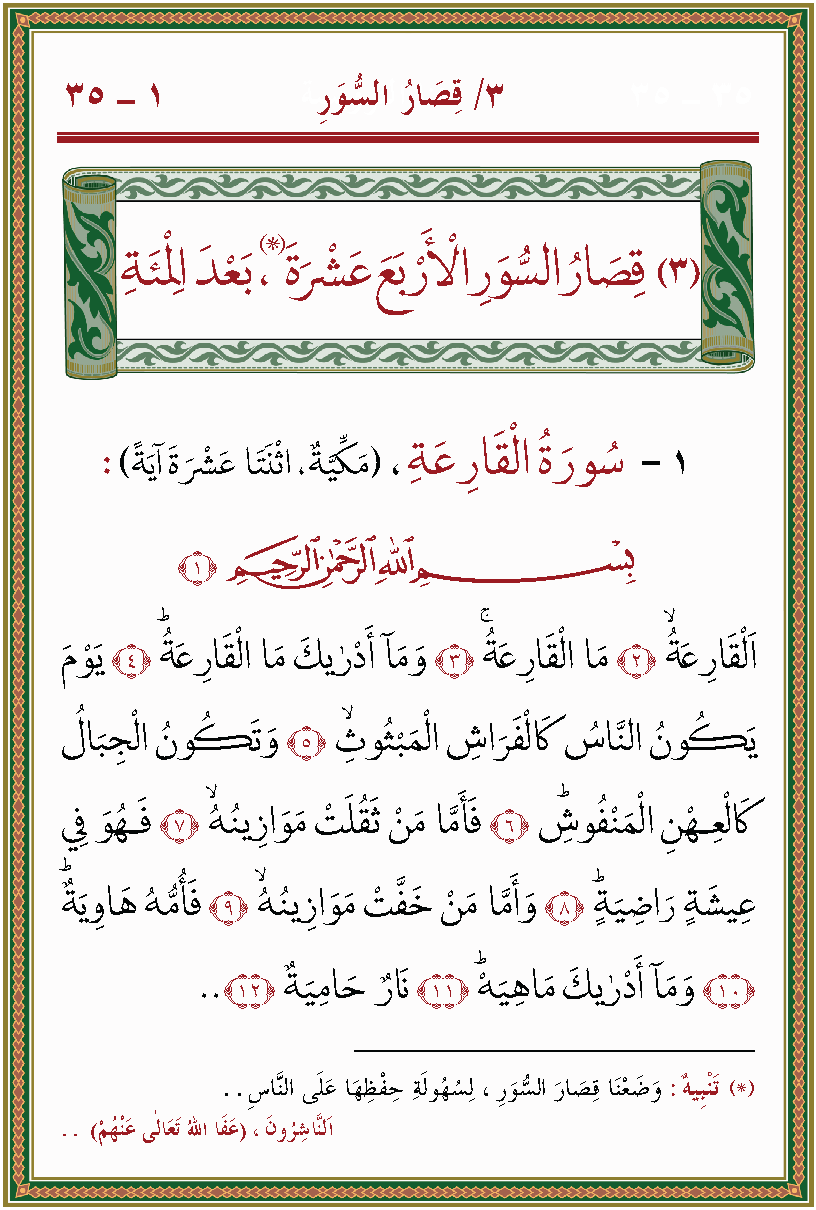 ٣/ قِصَارُ السُّوَرِ ١ – ٣٥
(٣) قِصَارُ السُّوَرِ الْأَرْبَعَ عَشْرَةَ(*)، بَعْدَ الْمِئَةِ
١ – سُورَةُ الْقَارِعَةِ ، (مَكِّيَّةٌ، اثْنَتَا عَشْرَةَ آيَةً) :
بِسْمِ اللهِ الرَّحْمٰنِ الرَّحِيمِ ﴿١﴾
اَلْقَارِعَةُۙ ﴿٢﴾ مَا الْقَارِعَةُۚ ﴿٣﴾ وَمَآ أَدْرٰيكَ مَا الْقَارِعَةُؕ ﴿٤﴾ يَوْمَ
يَكُونُ النَّاسُ كَالْفَرَاشِ الْمَبْثُوثِۙ ﴿٥﴾ وَتَكُونُ الْجِبَالُ
كَالْعِهْنِ الْمَنْفُوشِؕ ﴿٦﴾ فَأَمَّا مَنْ ثَقُلَتْ مَوَازِينُهُۙ ﴿٧﴾ فَهُوَ فِي
عِيشَةٍ رَاضِيَةٍؕ ﴿٨﴾ وَأَمَّا مَنْ خَفَّتْ مَوَازِينُهُۙ ﴿٩﴾ فَأُمُّهُ هَاوِيَةٌؕ
﴿١٠﴾ وَمَآ أَدْرٰيكَ مَاهِيَهْؕ ﴿١١﴾ نَارٌ حَامِيَةٌ ﴿١٢﴾..
(*) تَنْبِيهٌ : وَضَعْنَا قِصَارَ السُّوَرِ ، لِسُهُولَةِ حِفْظِهَا عَلَى النَّاسِ . .
اَلنَّاشِرُونَ ، (عَفَا اللهُ تَعَالٰى عَنْهُمْ) . .